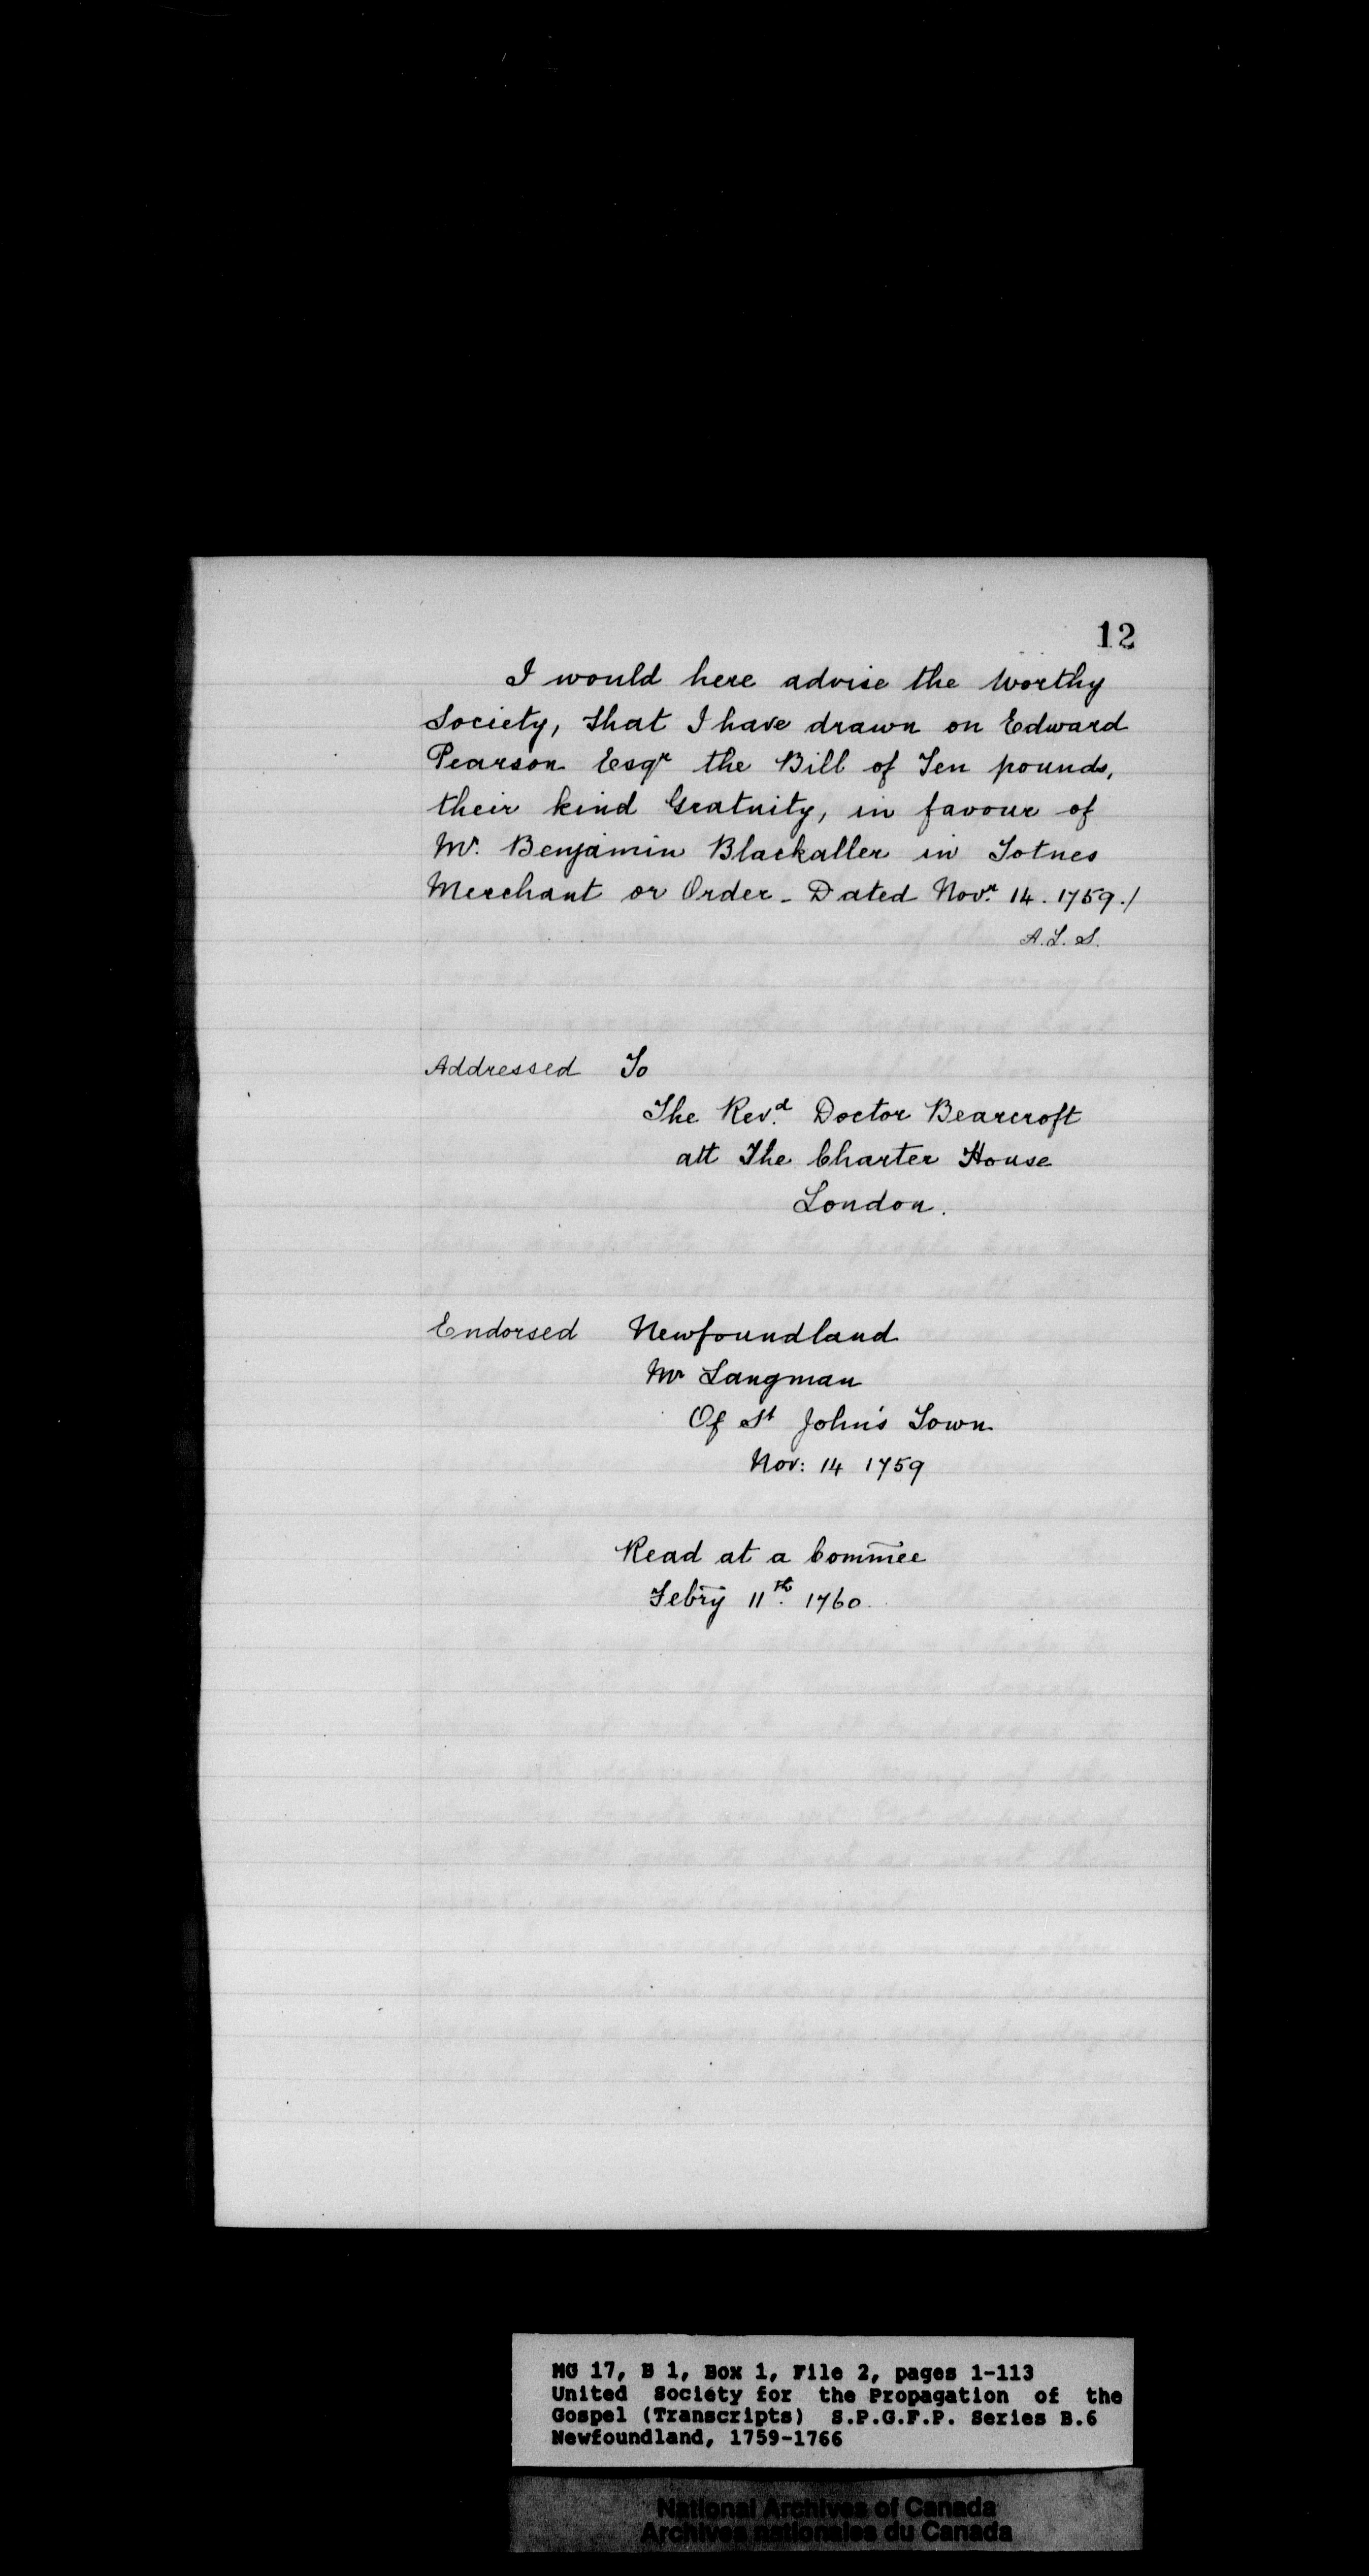 12
I would here advise the Worthy
Society, that I have drawn on Edward
Pearson Esqr the Bill of Ten pounds,
their kind Gratuity, in favour of
Mr. Benjamin Blackaller in Totnes
Merchant or Order - Dated Novr. 14. 1759./
A.L.S.
Addressed To
The Revd. Doctor Bearcroft
att The Charter House
London.
Endorsed Newfoundland
Mr Langman
Of St John's Town
Nov: 14 1759
Read at a Com̅mee
Feb̅ry 11th. 1760.
MG 17, B 1, Box 1, File 2, pages 1-113
United Society for the Propagation of the
Gospel (Transcripts) S.P.G.F.P. Series B.6
Newfoundland, 1759-1766
National Archives of Canada
Archives nationales du Canada